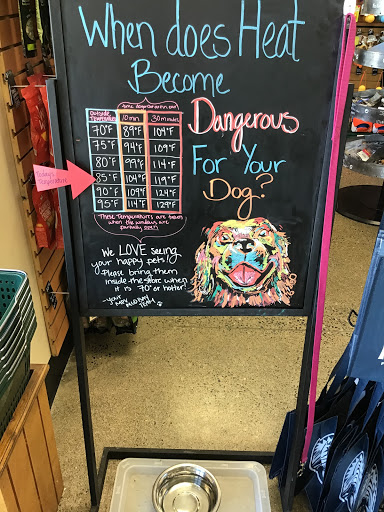 When does Heat
Become
Dangerous
For Your
Dog?
Outside Temperature 10 min 30 minutes
70°F 89°F 104°F
75°F 94°F 109°F
80°F 99°F 114°F
85°F 104°F 119°F
90°F 109°F 124°F
95°F 114°F 129°F
Today's
Temperature
These Temperatures are taken
when the windows are
partially OPEN!
We LOVE seeing
your happy pets!
Please bring them
inside the store when
it is 70° or hotter!
-your
Team